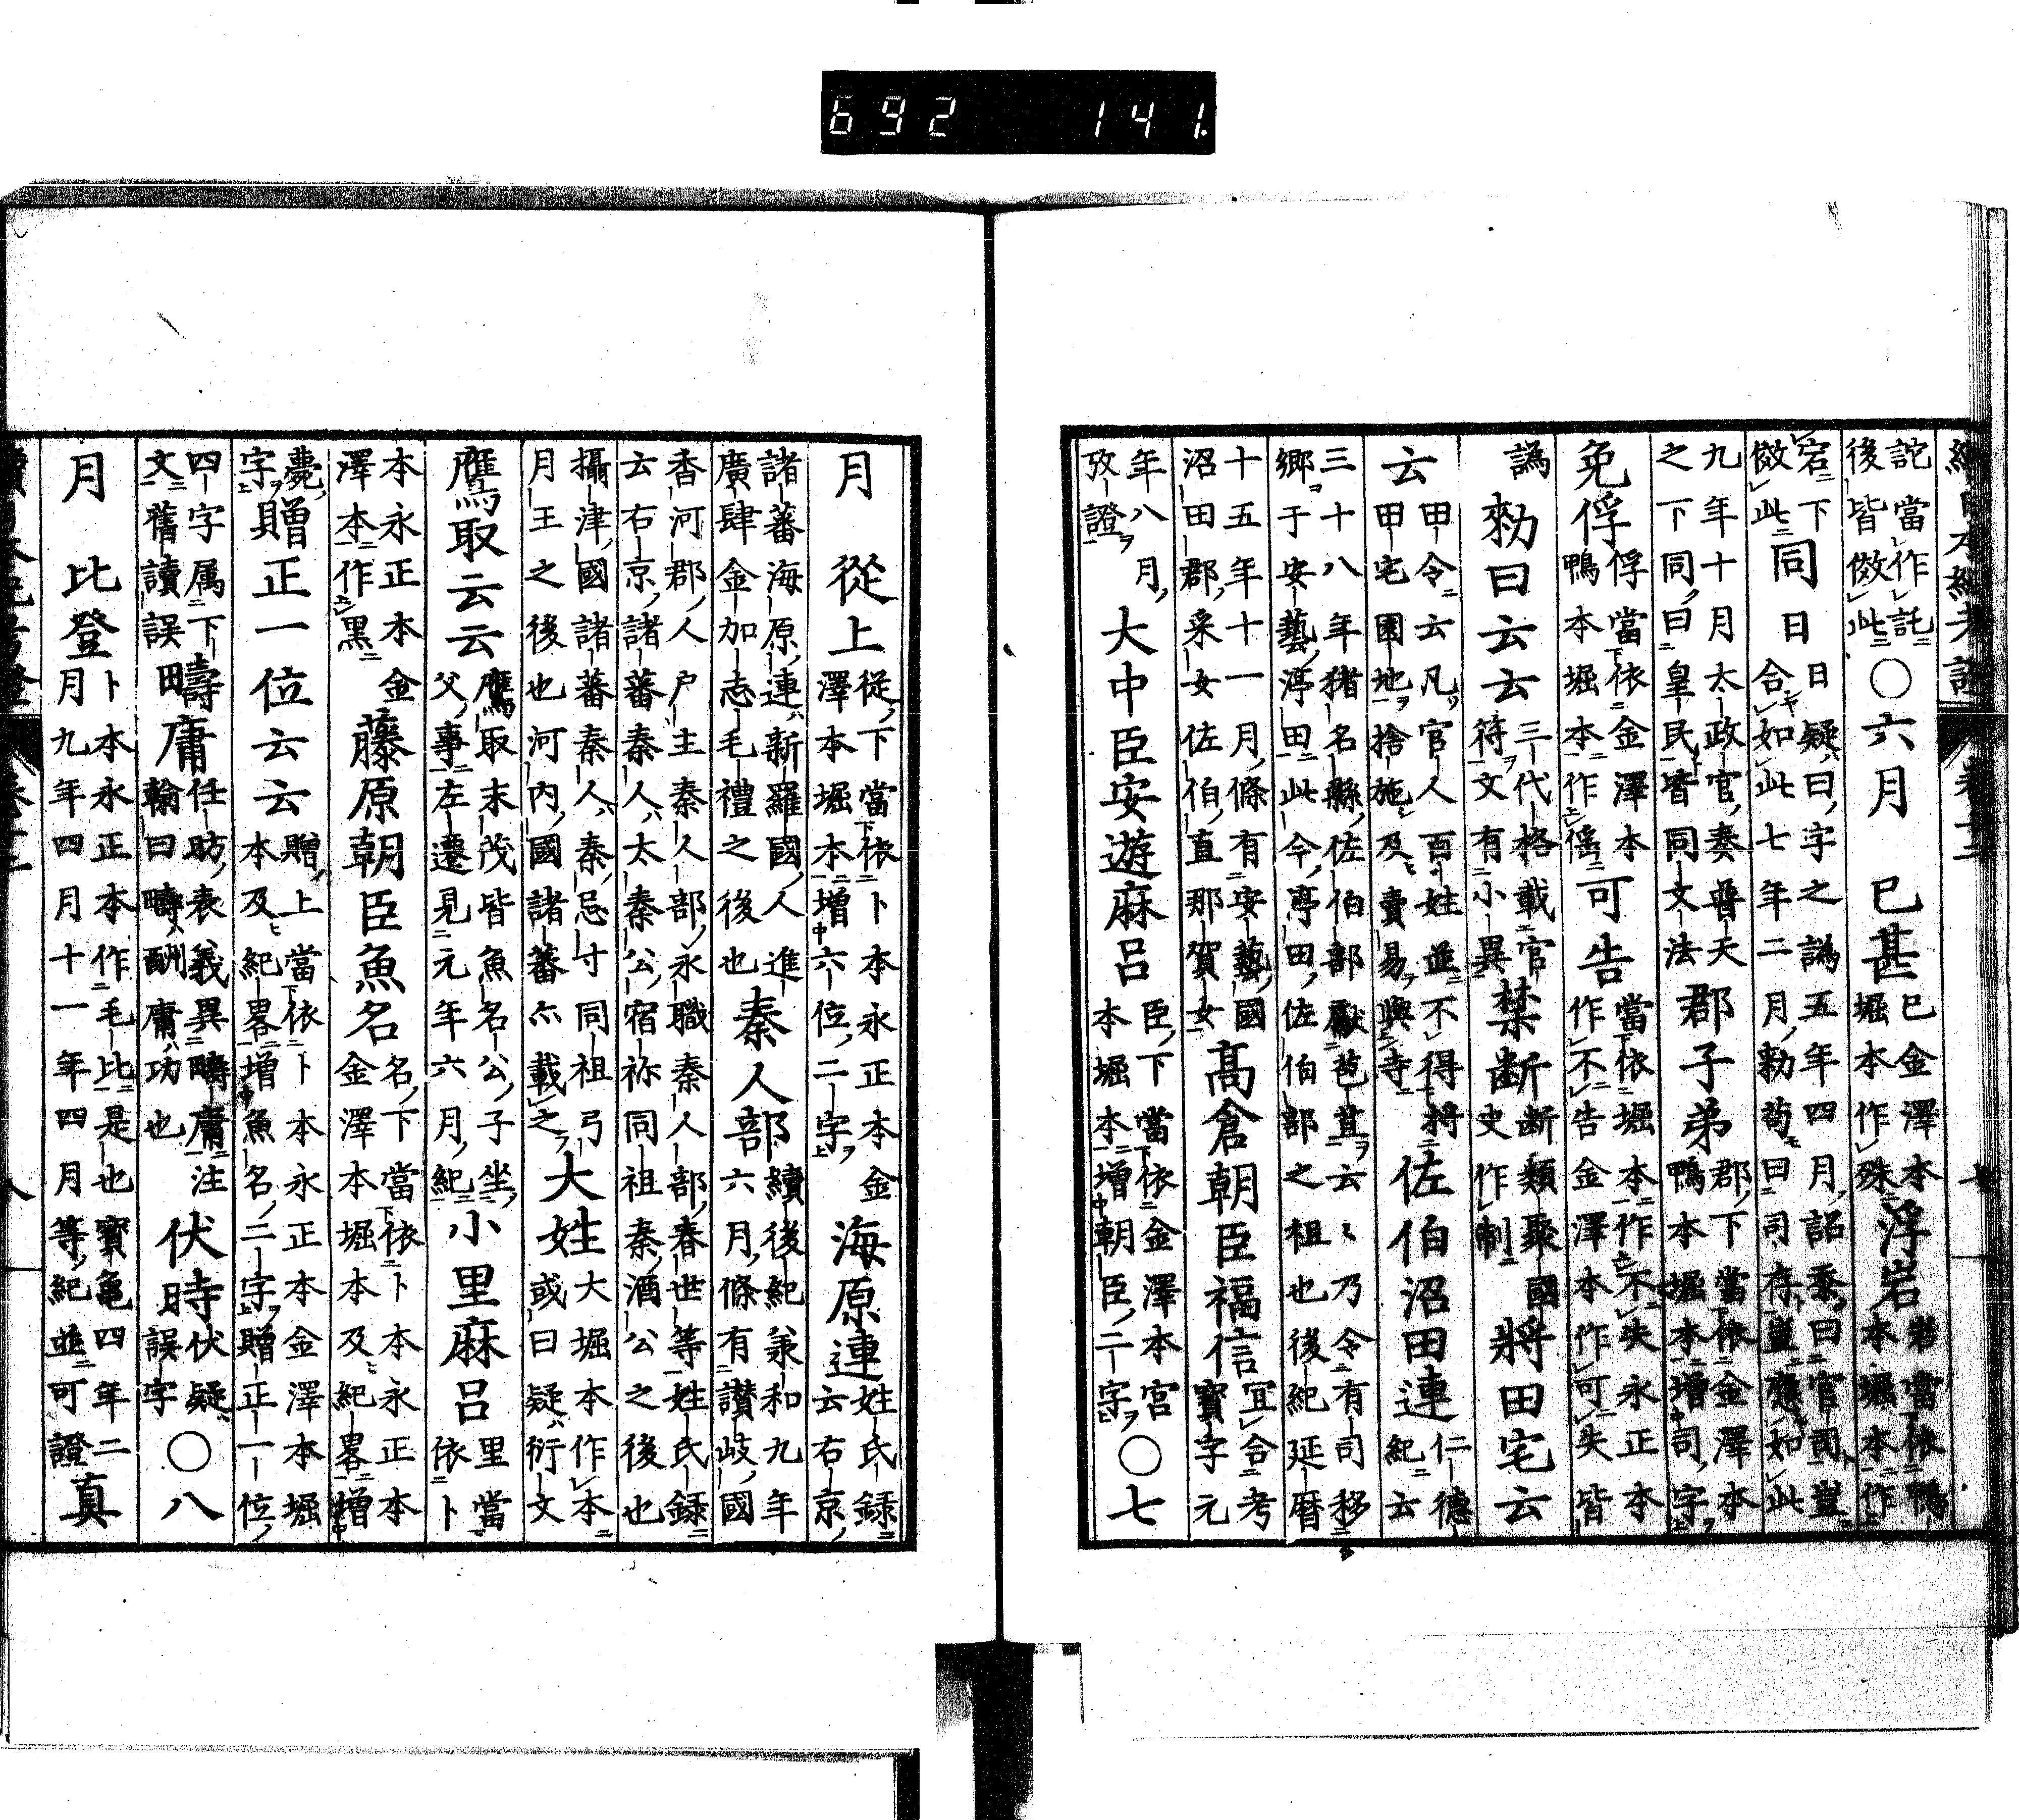 692 141.
詫當作託
後皆傚此○六月 已甚已金澤本堀本作殊浮岩岩當依鴨本堀本作
宕下傚此同日日疑曰字之譌五年四月詔奏曰官司豈合如此七年二月勅苟曰司存豈應如此
九年十月太政官奏普天之下同曰皇民皆同文法郡子弟郡下當依金澤本鴨本堀本增司字
免俘俘當依金澤本鴨本堀本作傜可告當依堀本作亡不失永正本作不告金澤本作可失皆
譌勅曰云云三代格載官符文有小異禁斷斷類聚國史作制將田宅云
云甲令云凡官人百姓並不得將甲宅園地捨施及賣易與寺佐伯沼田連仁德紀云
三十八年猪名縣佐伯部獻苞苴云〻乃令有司移鄉于安藝渟田此今渟田佐伯部之祖也後紀延曆
十五年十一月條有安藝國沼田郡采女佐伯直那賀女高倉朝臣福信宜合考寶字元
年八月攷證大中臣安遊麻呂臣下當依金澤本宮本堀本增朝臣二字○七
月 從上從下當依卜本永正本金澤本堀本增六位二字海原連姓氏錄云右京
諸蕃海原連新羅國人進廣肆金加志毛禮之後也秦人部續後紀承和九年六月條有讃岐國
香河郡人戶主秦人部永職秦人部春世等姓氏錄云右京諸蕃秦人太秦公宿祢同祖秦酒公之後也
攝津國諸蕃秦人秦忌寸同祖弓月王之後也河內國諸蕃亦載之大姓大堀本作本或曰疑衍文
鷹取云云鷹取末茂皆魚名公子坐父事左遷見元年六月紀小里麻呂里當依卜
本永正本金澤本作黑藤原朝臣魚名名下當依卜本永正本金澤本堀本及紀畧增
薨字贈正一位云云贈上當依卜本永正本金澤本堀本及紀畧增魚名二字贈正一位
四字属下文舊讀誤疇庸任昉表義異疇庸注翰曰疇酬庸功也伏時伏疑誤字○八
月 比登卜本永正本作毛比是也寶龜四年二月九年四月十一年四月等紀並可證真